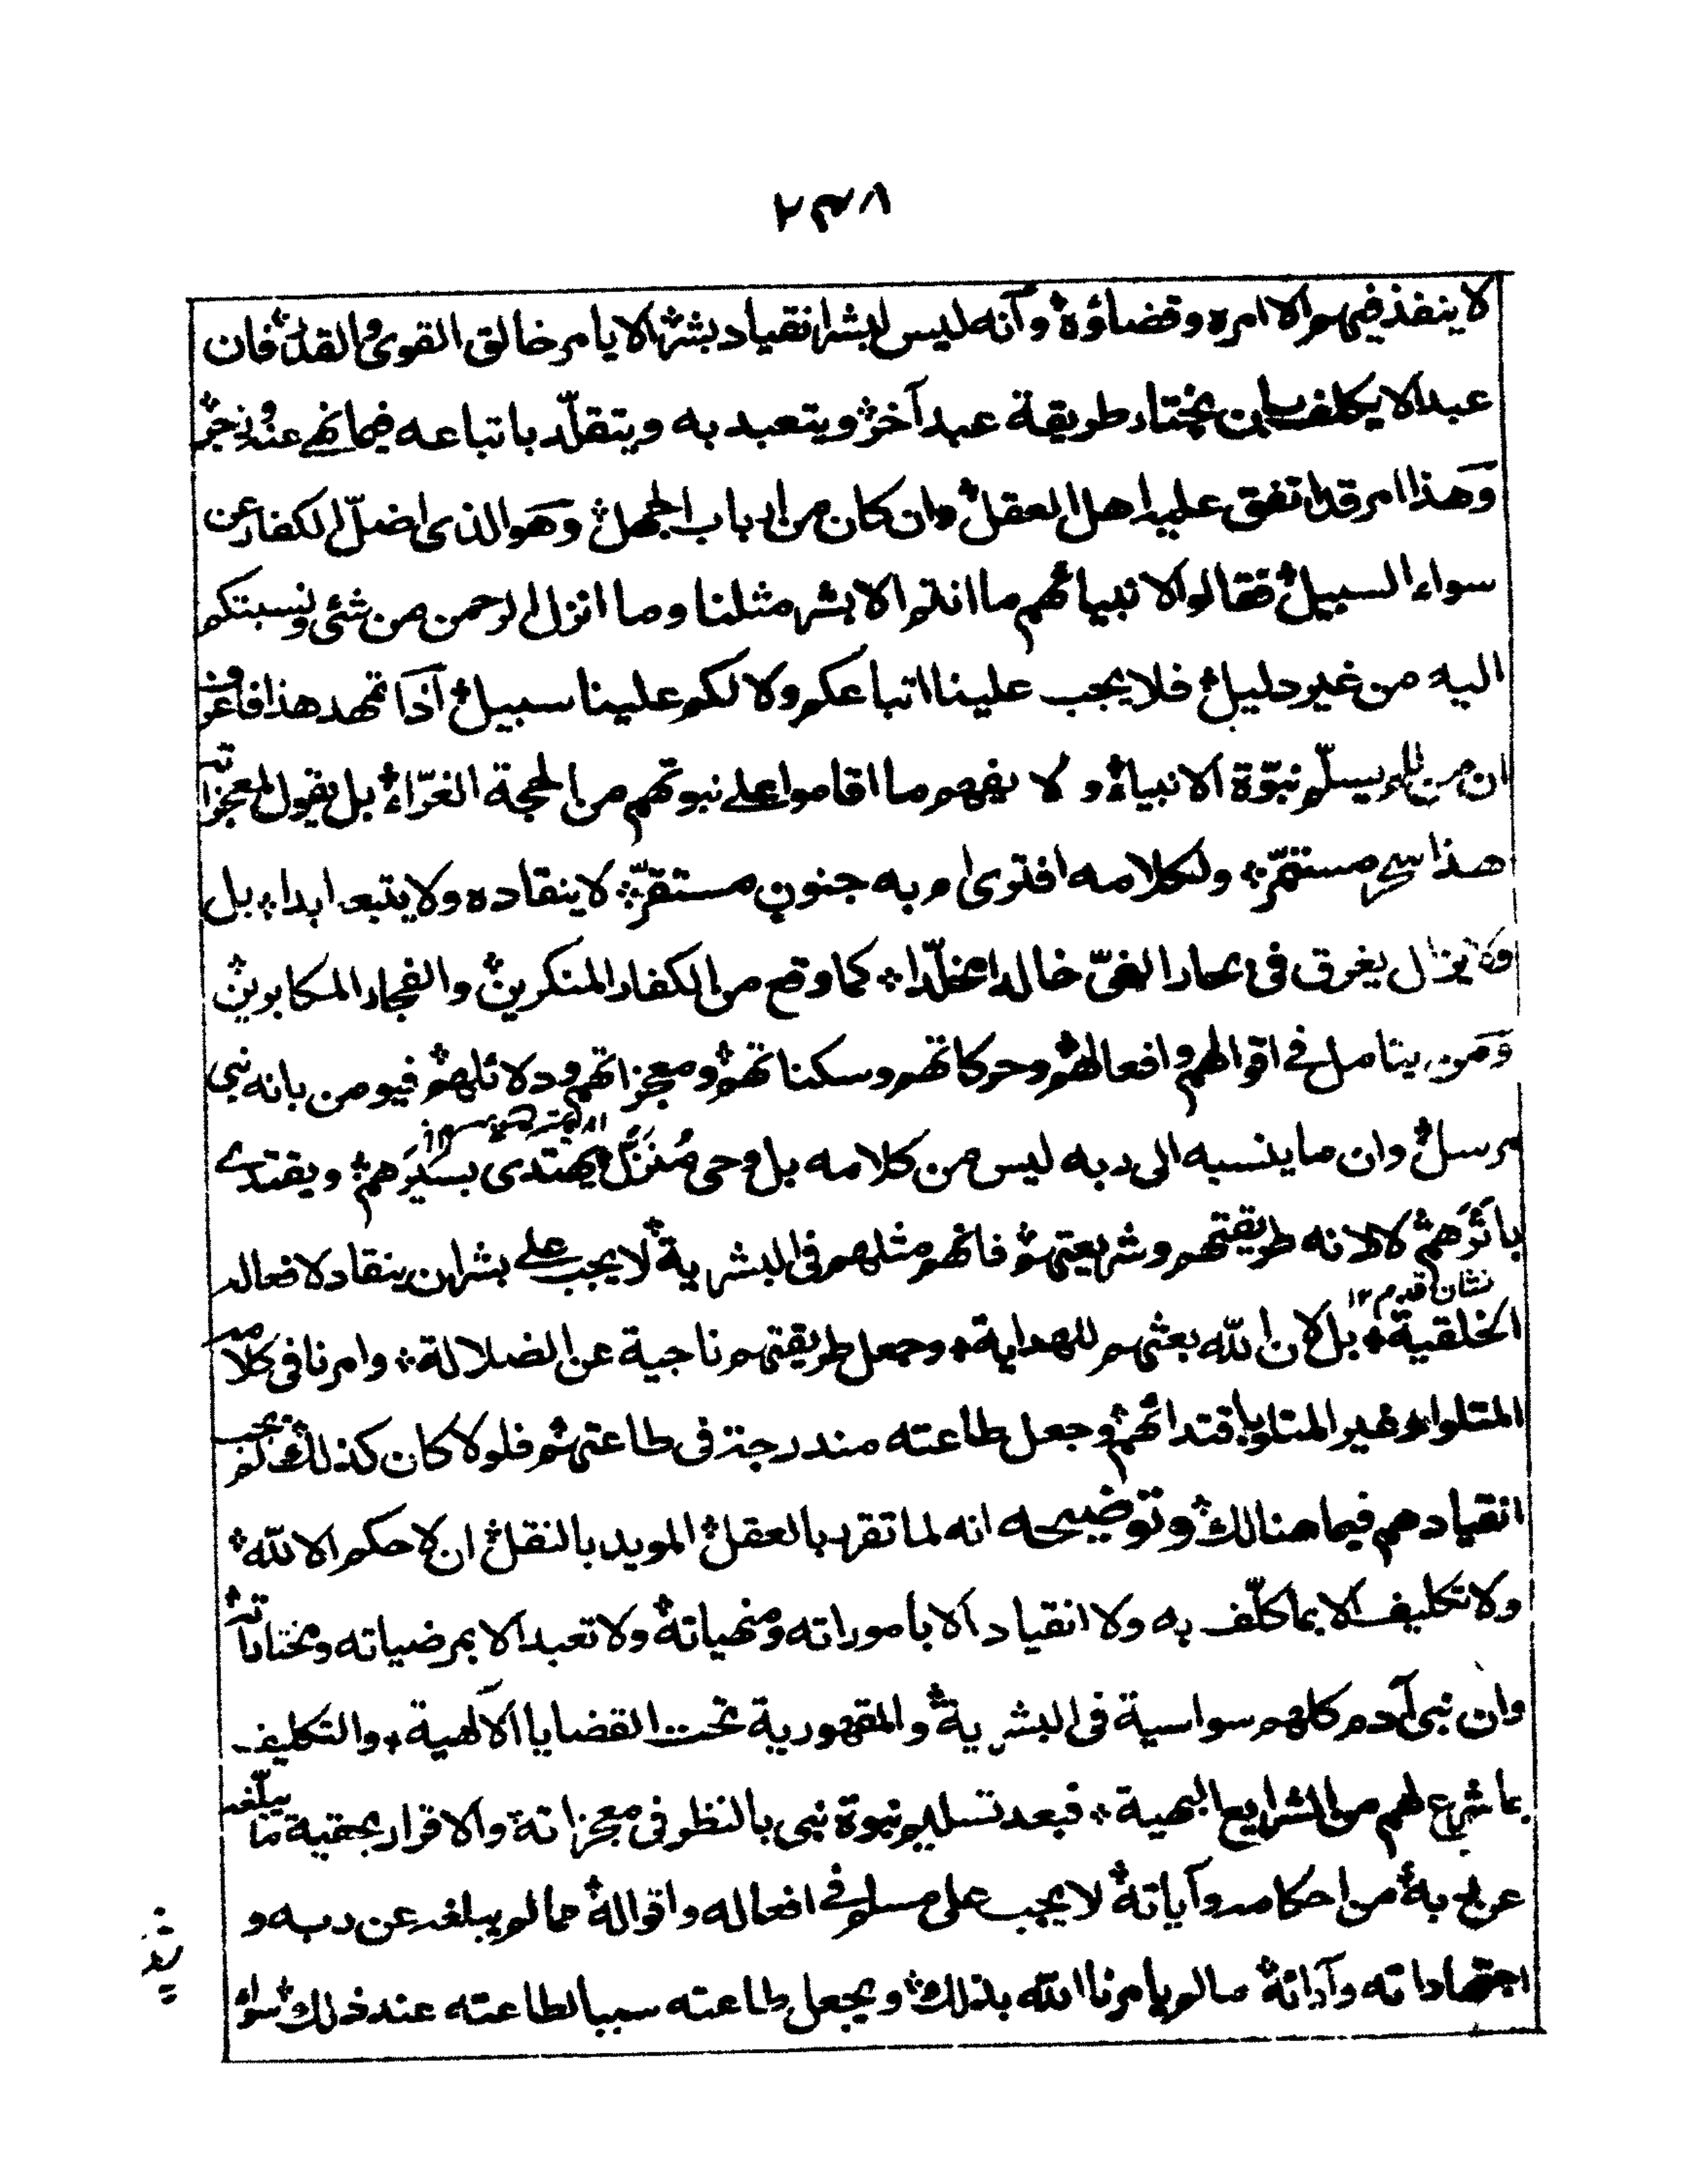 ٢٣٨
لا ينفذ فيهم الا امره وقضاؤه وآنه ليس لبشر انقياد بشر الا بامر خالق القوى والقدر فان
عبدا لا يكلف بان يختار طريقة عبد آخر ويتعبد به ويتقلّد باتباعه فيما نهى عنه وزجر
وهذا امر قد اتفق عليه اهل العقل وان كان من ارباب الجهل وهو الذى اضلّ الكفار عن
سواء السبيل فقالوا لانبيائهم ما انتم الا بشر مثلنا وما انزل الرحمن من شئ ونسبتكم
اليه من غير دليل فلا يجب علينا اتباعكم ولا لكم علينا سبيل اذا تمهد هذا فاعرف
ان من لم يسلّم نبوّة الانبياء و لا يفهم ما اقاموا على نبوتهم من الحجة الغرّاء بل يقول لمعجزاته
هذا سحر مستمرّ ولكلامه افترى ام به جنون مستقرّ لا ينقاده ولا يتبعه ابدا بل
ولا يزال يغرق فى بحار الغىّ خالدا مخلّدا كما وقع من الكفار المنكرين والفجار المكابرين
ومن يتامل فى اقوالهم وافعالهم وحركاتهم وسكناتهم ومعجزاتهم ودلائلهم فيومن بانه نبى
مرسل وان ما ينسبه الى ربه ليس من كلامه بل وحى مُنَزَّل يهتدى بسِيَرهم ويقتدى
باَثَرهم لا لانه طريقتهم وشريعتهم فانهم مثلهم فى البشرية لا يجب على بشر ان ينقاد لافعاله
نشان قدم ١٢
الخلقية بل لان الله بعثهم للهداية وجعل طريقتهم ناجية عن الضلالة وامرنا فى كلامه
المتلو او غير المتلو باقتدائهم وجعل طاعته مندرجة فى طاعتهم فلولا كان كذلك لم يجب
انقيادهم فيما هنالك وتوضيحه انه لما تقرر بالعقل المويد بالنقل ان لا حكم الا لله
ولا تكليف الا بما كلّف به ولا انقياد الا بأموراته ومنهياته ولا تعبد الا بمرضياته ومختاراته
وان نبى آدم كلهم سواسية فى البشرية والمقهورية تحت القضايا الالهية والتكليف
بما شرع لهم من الشرايع البهية فبعد تسليم نبوة نبى بالنظر فى معجزاته والاقرار بحقية ما يبلّغه
عن ربه من احكامه وآياته لا يجب على مسلم فى افعاله واقواله مما لم يبلغه عن ربه و
اجتهاداته وآدائه ما لم يامرنا الله بذلك ويجعل طاعته سببا لطاعته عند ذلك سواء